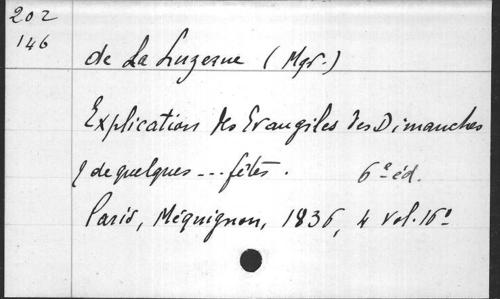 202
146
de La Luzerne (Mgr.)
Explication des Evangiles des Dimanches
& de quelques ... fêtes. 6e éd.
Paris, Méquignon, 1836, 4 vol. 16°